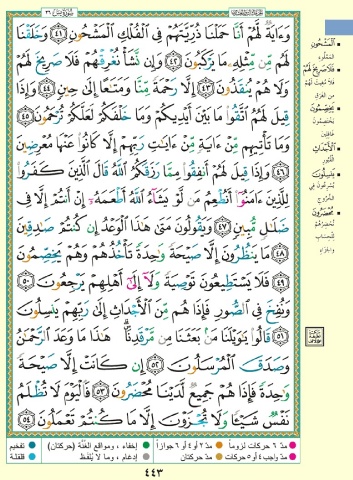 وَءَايَةٌ لَّهُمْ أَنَّا حَمَلْنَا ذُرِّيَّتَهُمْ فِى ٱلْفُلْكِ ٱلْمَشْحُونِ ٤١ وَخَلَقْنَا
لَهُم مِّن مِّثْلِهِۦ مَا يَرْكَبُونَ ٤٢ وَإِن نَّشَأْ نُغْرِقْهُمْ فَلَا صَرِيخَ لَهُمْ
وَلَا هُمْ يُنقَذُونَ ٤٣ إِلَّا رَحْمَةً مِّنَّا وَمَتَٰعًا إِلَىٰ حِينٍ ٤٤ وَإِذَا
قِيلَ لَهُمُ ٱتَّقُوا۟ مَا بَيْنَ أَيْدِيكُمْ وَمَا خَلْفَكُمْ لَعَلَّكُمْ تُرْحَمُونَ ٤٥
وَمَا تَأْتِيهِم مِّنْ ءَايَةٍ مِّنْ ءَايَٰتِ رَبِّهِمْ إِلَّا كَانُوا۟ عَنْهَا مُعْرِضِينَ
٤٦ وَإِذَا قِيلَ لَهُمْ أَنفِقُوا۟ مِمَّا رَزَقَكُمُ ٱللَّهُ قَالَ ٱلَّذِينَ كَفَرُوا۟
لِلَّذِينَ ءَامَنُوٓا۟ أَنُطْعِمُ مَن لَّوْ يَشَآءُ ٱللَّهُ أَطْعَمَهُۥٓ إِنْ أَنتُمْ إِلَّا فِى
ضَلَٰلٍ مُّبِينٍ ٤٧ وَيَقُولُونَ مَتَىٰ هَٰذَا ٱلْوَعْدُ إِن كُنتُمْ صَٰدِقِينَ
٤٨ مَا يَنظُرُونَ إِلَّا صَيْحَةً وَٰحِدَةً تَأْخُذُهُمْ وَهُمْ يَخِصِّمُونَ
٤٩ فَلَا يَسْتَطِيعُونَ تَوْصِيَةً وَلَآ إِلَىٰٓ أَهْلِهِمْ يَرْجِعُونَ ٥٠
وَنُفِخَ فِى ٱلصُّورِ فَإِذَا هُم مِّنَ ٱلْأَجْدَاثِ إِلَىٰ رَبِّهِمْ يَنسِلُونَ
٥١ قَالُوا۟ يَٰوَيْلَنَا مَنۢ بَعَثَنَا مِن مَّرْقَدِنَا ۜ ۗ هَٰذَا مَا وَعَدَ ٱلرَّحْمَٰنُ
وَصَدَقَ ٱلْمُرْسَلُونَ ٥٢ إِن كَانَتْ إِلَّا صَيْحَةً
وَٰحِدَةً فَإِذَا هُمْ جَمِيعٌ لَّدَيْنَا مُحْضَرُونَ ٥٣ فَٱلْيَوْمَ لَا تُظْلَمُ
نَفْسٌ شَيْـًٔا وَلَا تُجْزَوْنَ إِلَّا مَا كُنتُمْ تَعْمَلُونَ ٥٤
ٱلْمَشْحُونِ
المملوء
فَلَا صَرِيخَ لَهُمْ
من الغرق
يَخِصِّمُونَ
يختصمون
غافلين
ٱلْأَجْدَاثِ
القبور
يَنسِلُونَ
يسرعون في
الخروج
مُحْضَرُونَ
نُحضرهم
للحساب
والجزاء
مدّ ٦ حركات لزوماً مدّ ٢ أو ٤ أو ٦ جوازاً إخفاء، ومواقع الغُنَّة (حركتان) تفخيم
مدّ واجب ٤ أو ٥ حركات مدّ حركتان إدغام، وما لا يُلفَظ قلقلة
٤٤٣